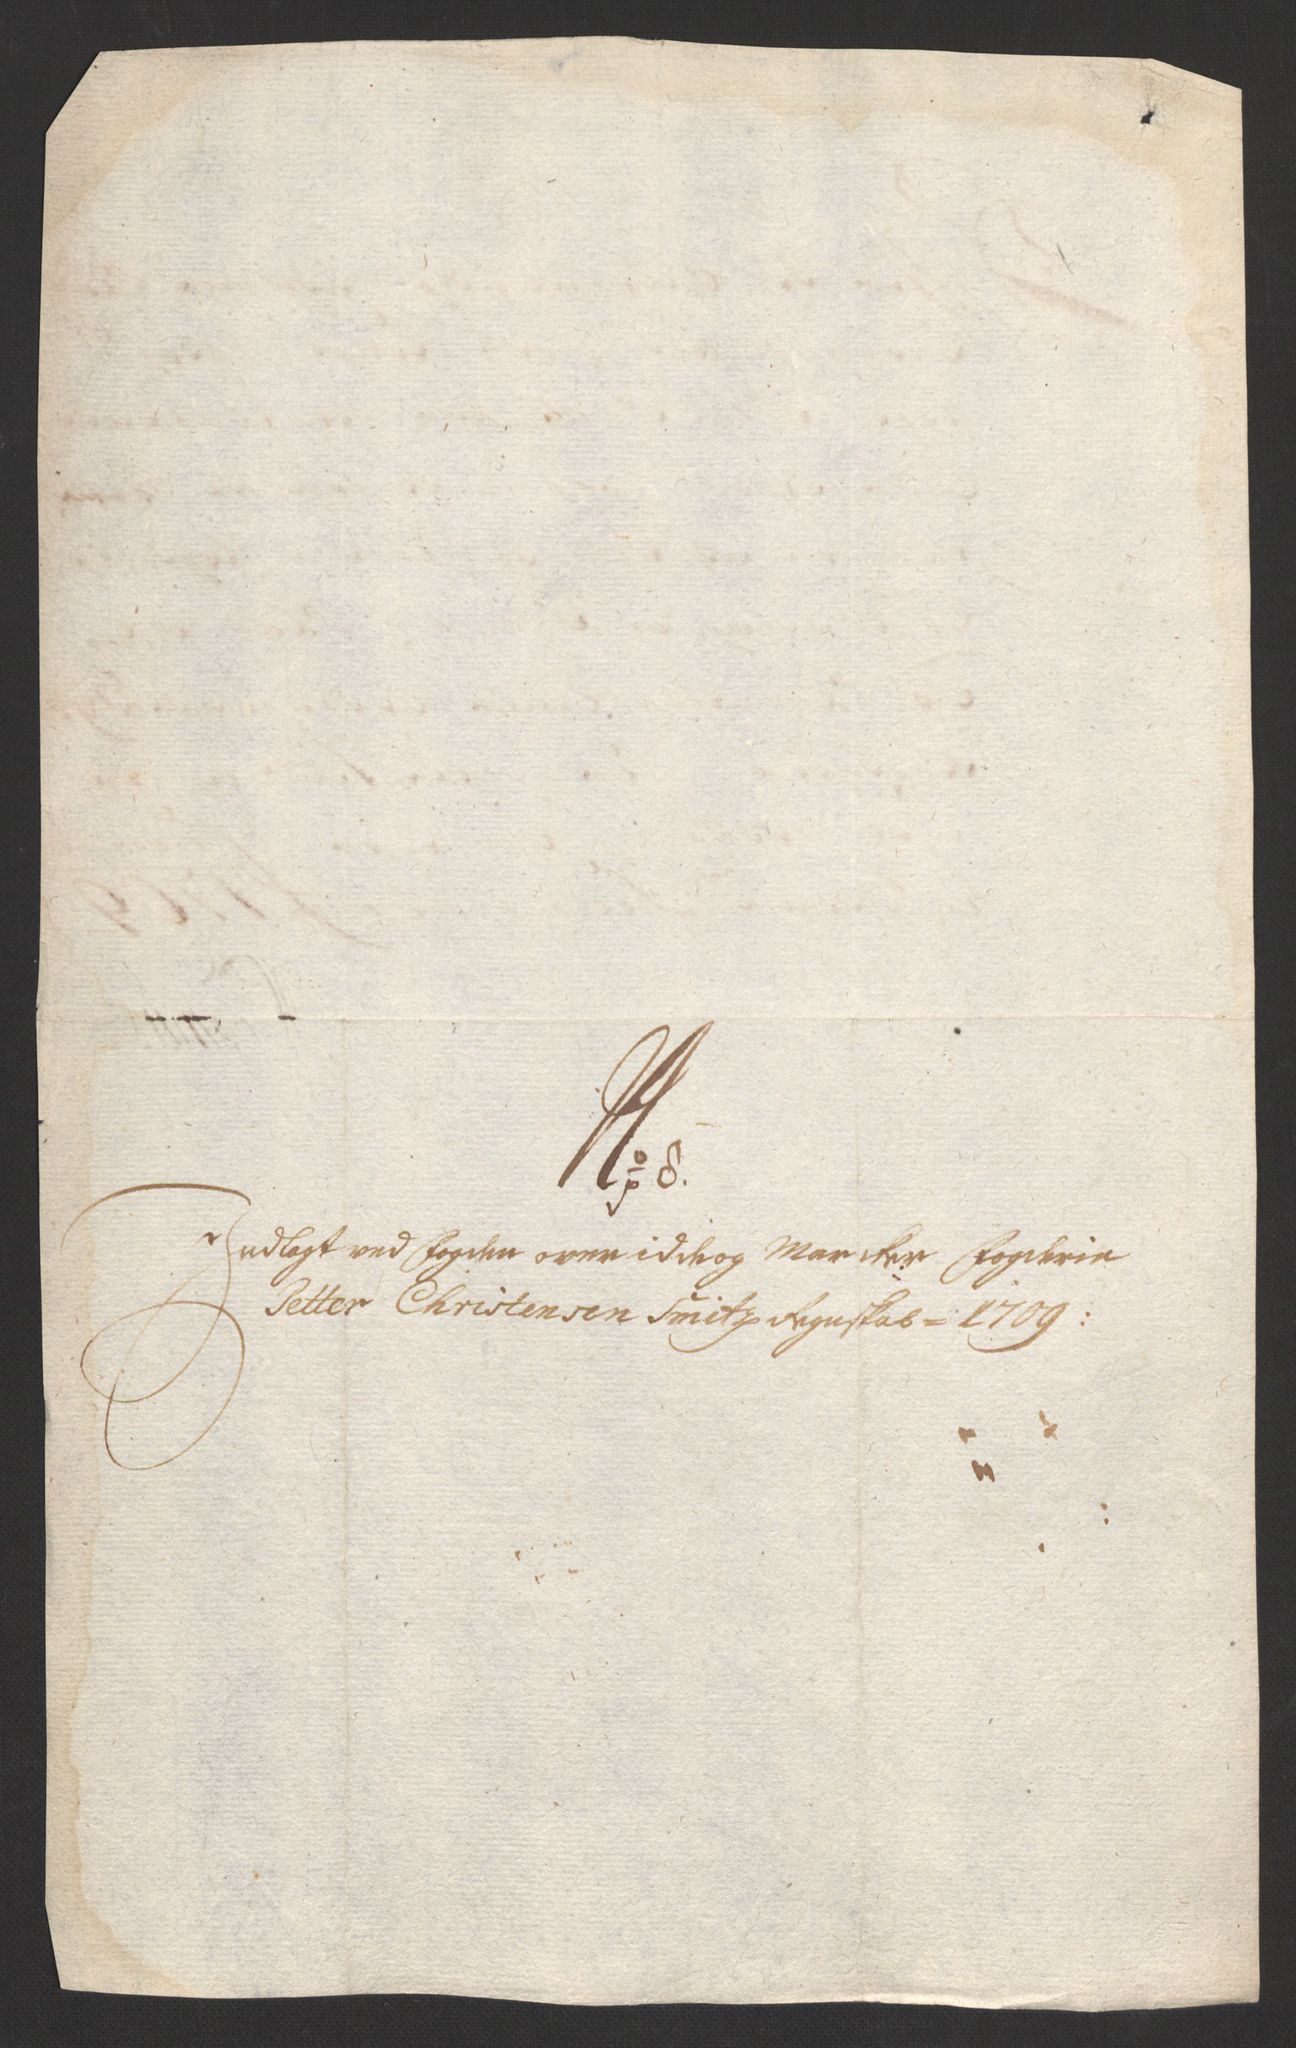 No 8.
Indlagt ved fogden over idde og Marcker fogderie
Petter Christensen Smitz Regnskab = 1709: